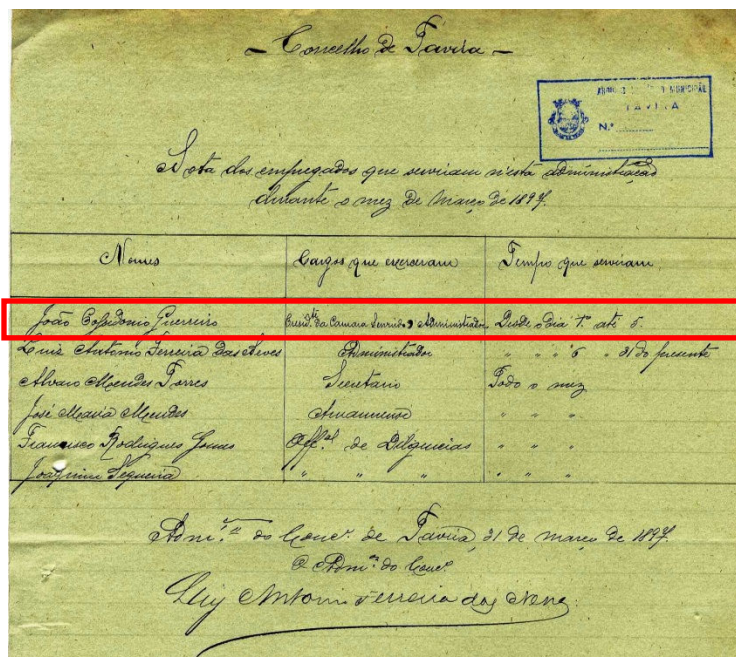 – Concelho de Tavira –
ARQUIVO HISTÓRICO MUNICIPAL
TAVIRA
N.º
Nota dos empregados que serviram n'esta administração
durante o mez de Março de 1897.
Nomes Cargos que exerceram Tempo que serviram
João Guerreiro Presid.te da Camara servindo d'Administrador Desde o dia 1º até 5.
Luiz Antonio Ferreira das Neves Administrador " " " 6 " 31 do presente
Alvaro Mendes Torres Secretario Todo o mez
José Maria Mendes Amanuense " " "
Francisco Rodrigues Gomes Off.al de Diligencias " " "
Joaquim Sequeira " " " " " "
Adm.am do Conc.º de Tavira, 31 de março de 1897.
O Adm.or do Conc.º
Luiz Antonio Ferreira das Neves